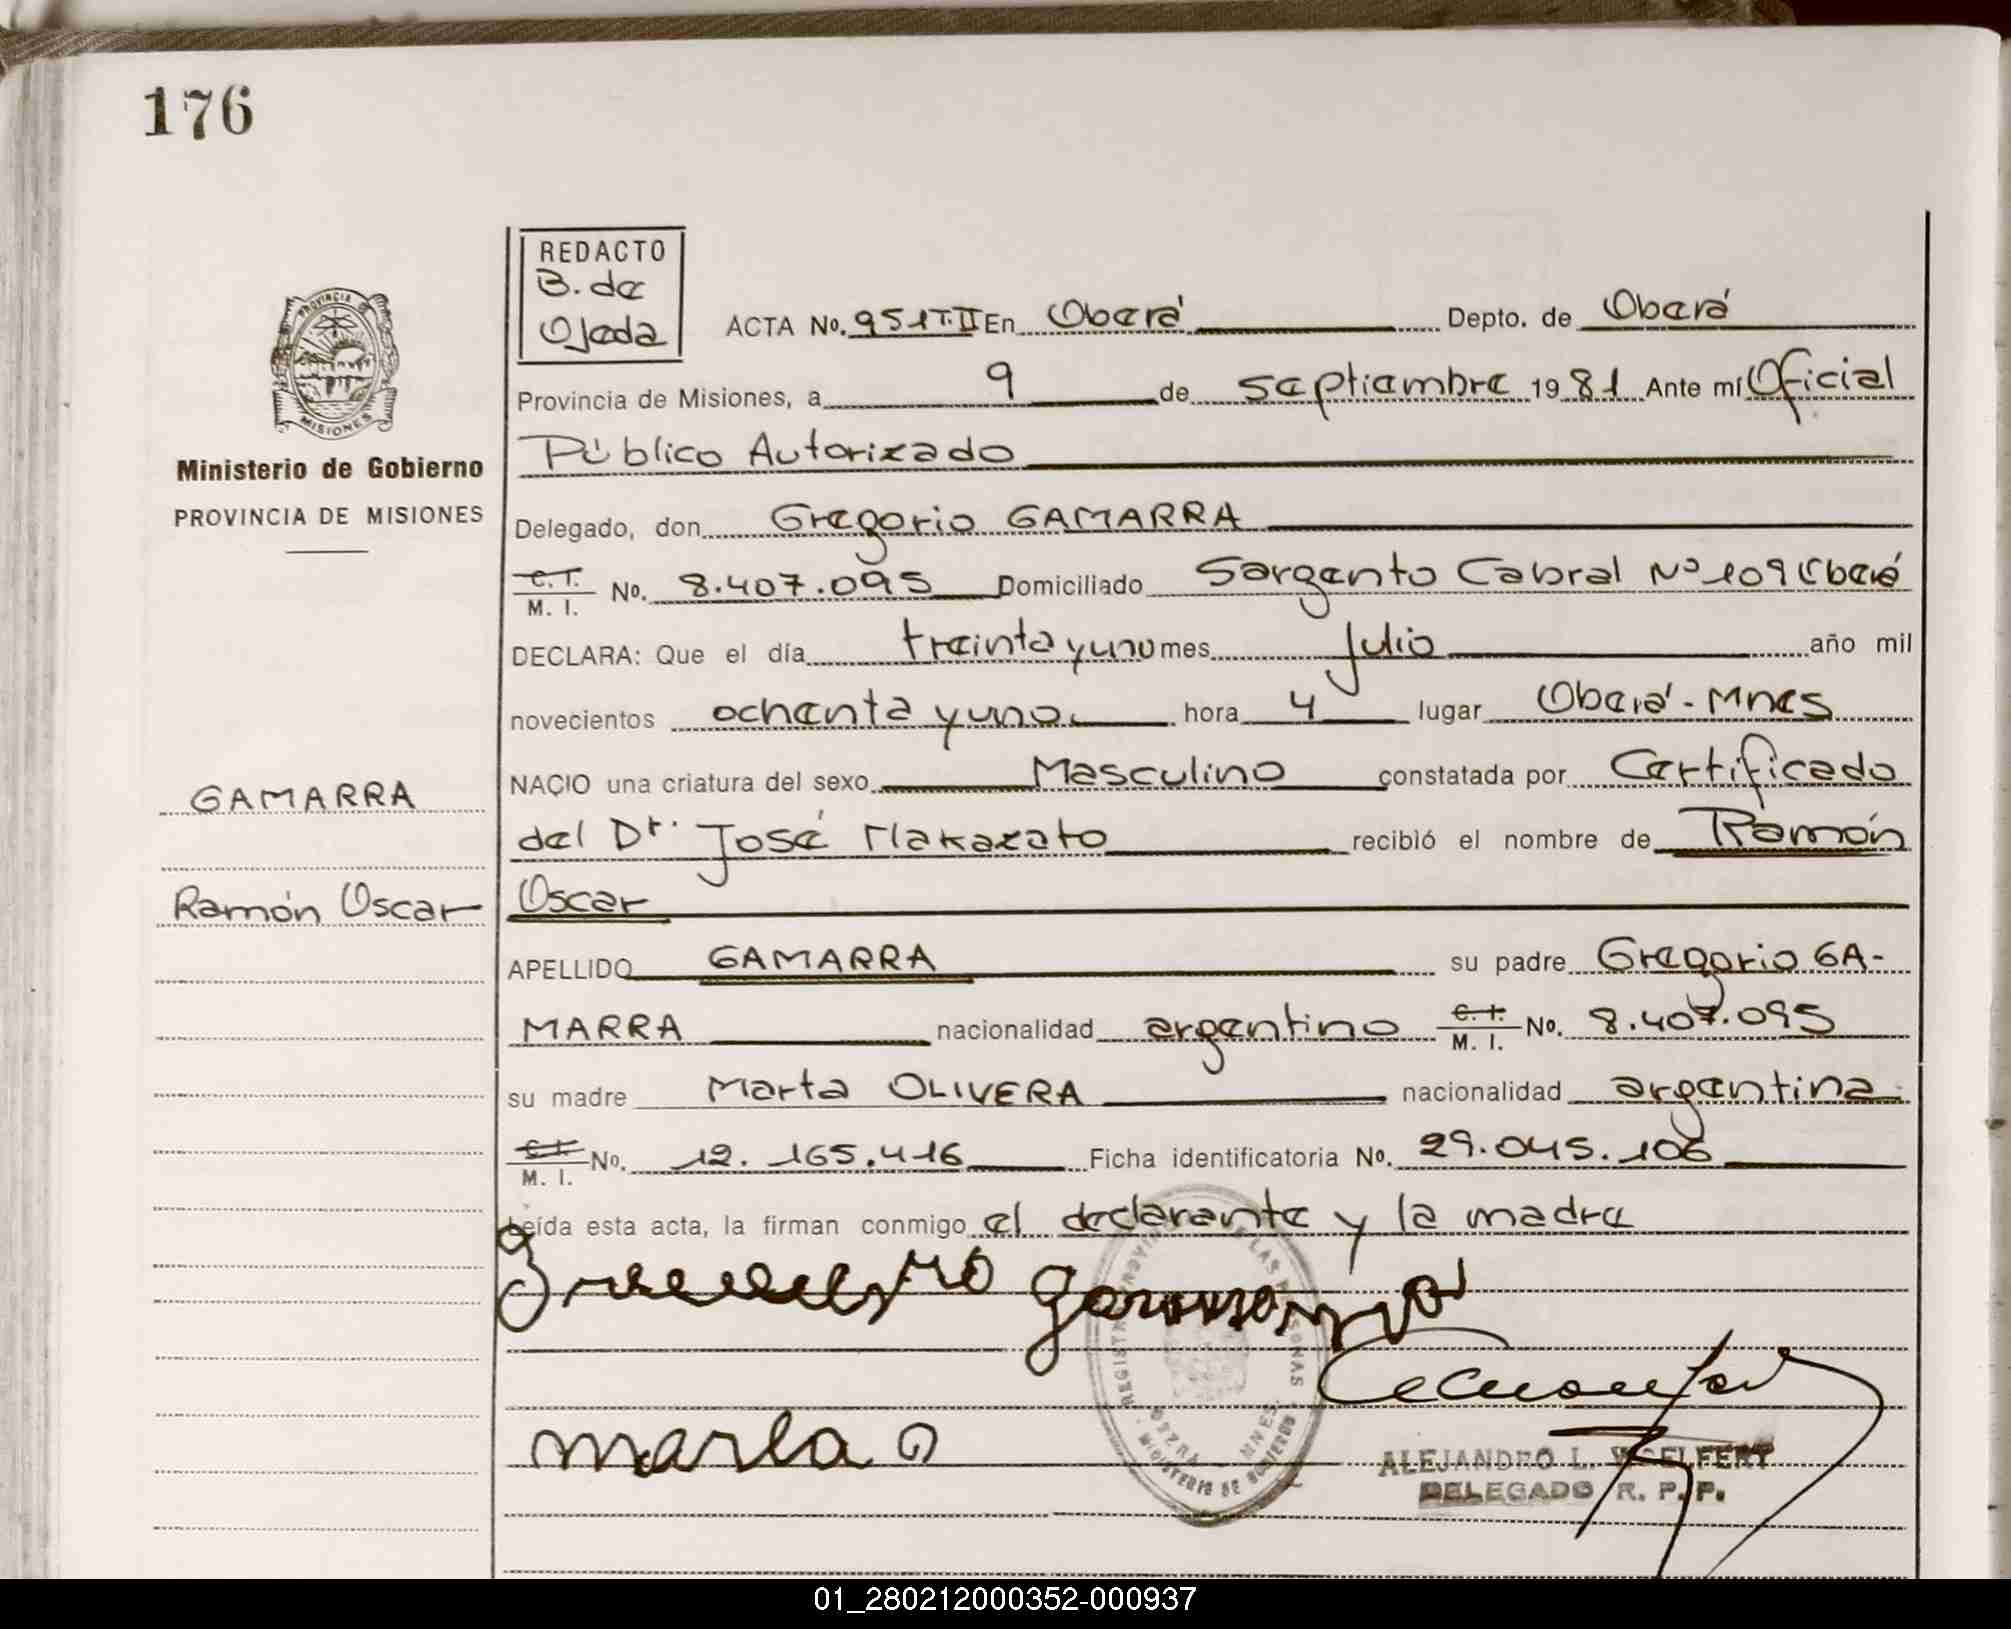 176
REDACTO
B. de
Ojeda
ACTA No. 951 T. II En Oberá Depto. de Oberá
Provincia de Misiones, a 9 de septiembre 1981 Ante mí Oficial
Público Autorizado
Delegado, don Gregorio GAMARRA
C. I.
M. I. No. 8.407.095 Domiciliado Sargento Cabral Nº 109 Oberá
DECLARA: Que el día treinta y uno mes Julio año mil
novecientos ochenta y uno hora 4 lugar Oberá - Mnes
NACIO una criatura del sexo Masculino constatada por Certificado
del Dr. José Makazato recibió el nombre de Ramón
Oscar
APELLIDO GAMARRA su padre Gregorio GA-
MARRA nacionalidad argentino C. I. M. I. No. 8.407.095
su madre Marta OLIVERA nacionalidad argentina
C. I.
M. I. No. 12.165.416 Ficha identificatoria No. 29.045.106
Leída esta acta, la firman conmigo el declarante y la madre
marta O
ALEJANDRO L. WOELFERT
DELEGADO R. P. P.
PROVINCIA DE
MISIONES
Ministerio de Gobierno
PROVINCIA DE MISIONES
GAMARRA
Ramón Oscar
01_280212000352-000937